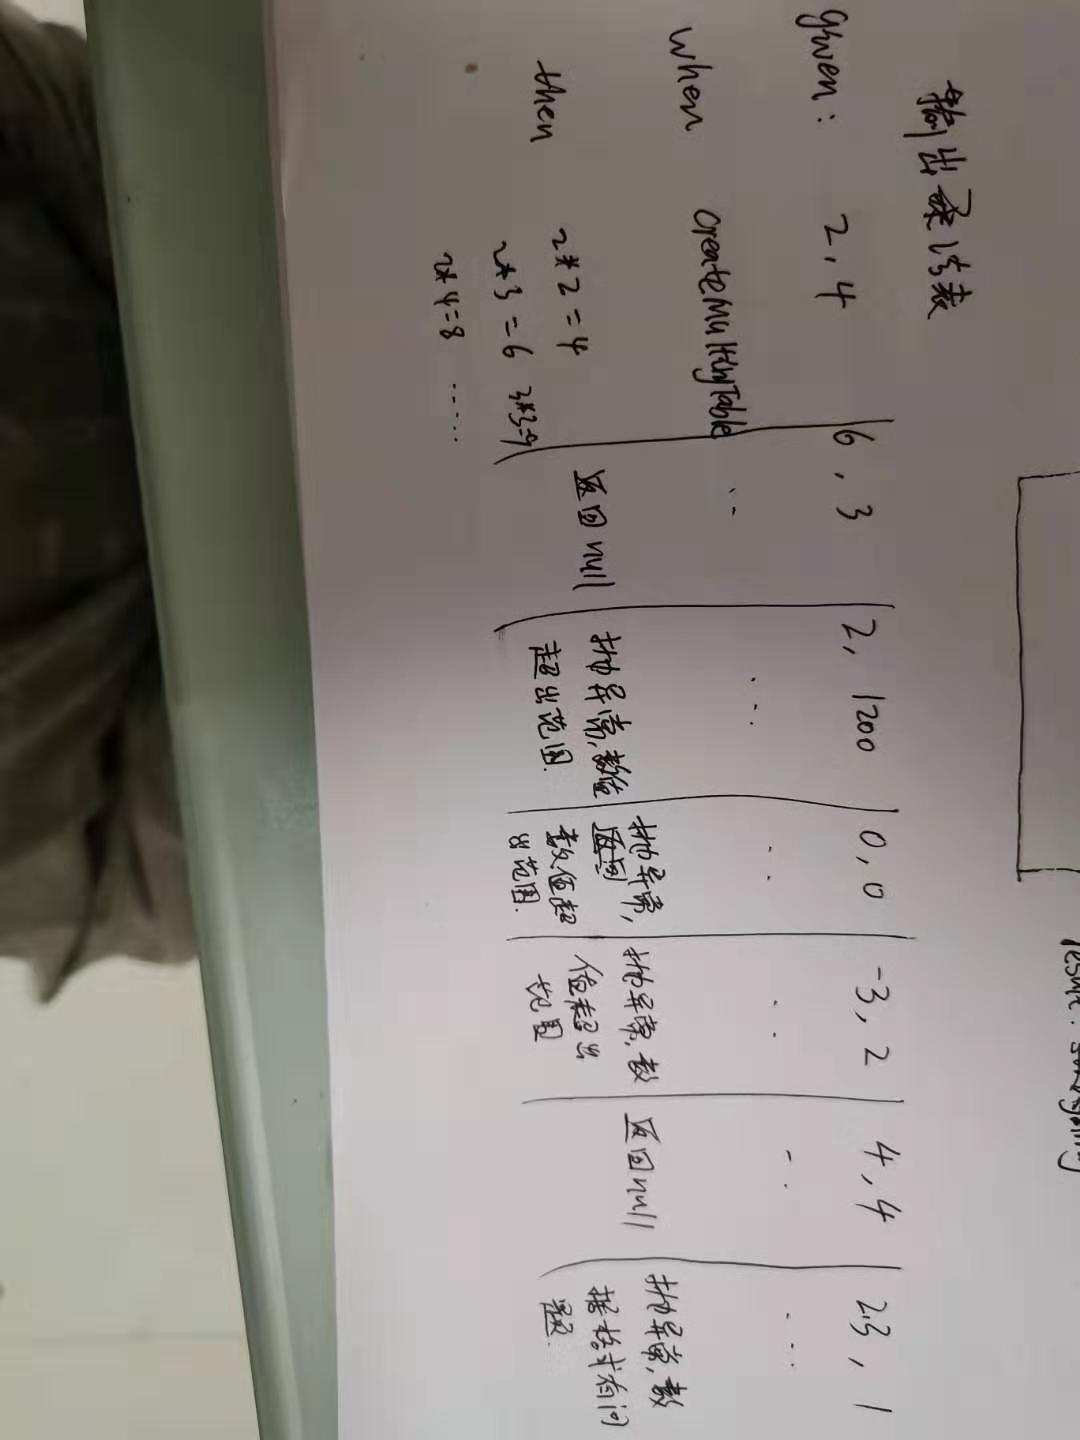 输出乘法表
given: 2,4 | 6,3 | 2,1200 | 0,0 | -3,2 | 4,4 | 2.3,1
when createMultiyTable
then
2*2=4
2*3=6 3*3=9
2*4=8 ……
返回null
抛异常,数值
超出范围.
抛异常,
返回
数值超
出范围.
抛异常,数
值超出
范围
返回null
抛异常,数
据格式有问
题.
result: